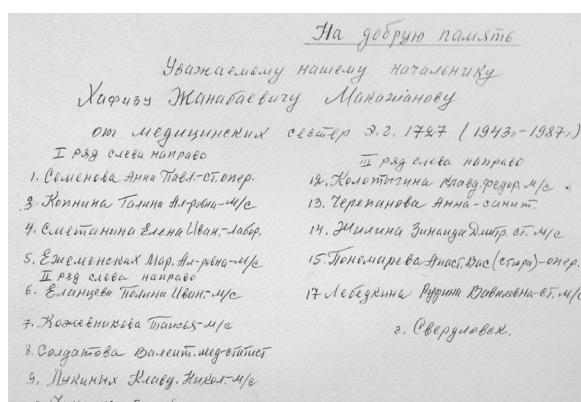 На добрую память
Уважаемому нашему начальнику
Хафизу Жанабаевичу Макажанову
от медицинских сестер Э.г. 1727 (1943г-1987г)
I ряд слева направо
1. Семенова Анна Павл.-ст.опер.
3 Копнина Галина Ал-ровна-м/с
4. Сметанина Елена Иван.-лабор.
5. Ежеменских Мар. Ал-ровна-м/с
II ряд слева направо
6. Еланцева Полина Иван.-м/с
7. Кожевникова Таисья-м/с
8. Солдатова Валент. мед-статист
9. Лукиных Клавд. Никол.-м/с
III ряд слева направо
12. Колотыгина Клавд. Федор. м/с
13. Черепанова Анна-санит.
14. Жилина Зинаида Дмитр. ст. м/с
15. Пономарева Анаст. Вас (стюра)-опер.
17 Лебедкина Руфина Вавиловна-ст. м/с
г. Свердловск.